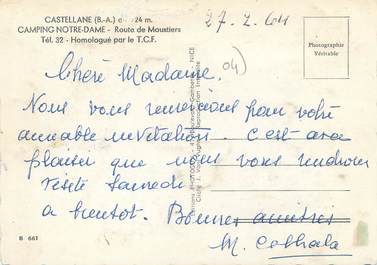 CASTELLANE (B.-A.) 24 m.
CAMPING NOTRE-DAME - Route de Moustiers
Tél. 32 - Homologué par le T.C.F.
27-2-64
Photographie
Véritable
04
Chère Madame.
Nous vous remercions pour votre
aimable invitation. C'est avec
plaisir que nous vous rendrons
visite Samedi
a bientot. Bonnes amitiés
M.
B 661
Reproduction Interdite
NICE